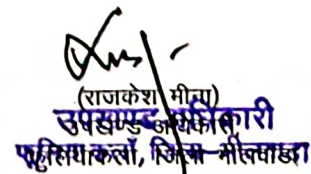 (राजकेश मीना)
उपखण्ड अधिकारी
फुलियाकलाँ, जिला-भीलवाडा